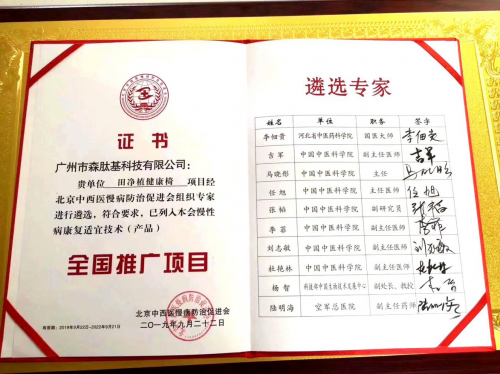 证书
广州市森肽基科技有限公司：
贵单位 田净植健康椅 项目经
北京中西医慢病防治促进会组织专家
进行遴选，符合要求，已列入本会慢性
病康复适宜技术（产品）
全国推广项目
北京中西医慢病防治促进会
二〇一九年九月二十二日
有效期：2019年9月22日-2022年9月21日
遴选专家
姓名 单位 职务 签字
李佃贵 河北省中医药科学院 国医大师 李佃贵
吉军 中国中医科学院 副主任医师 吉军
马晓彤 中国中医科学院 主任
任旭 中国中医科学院 副主任医师 任旭
张韬 中国中医科学院 副研究员
李霏 中国中医科学院 副主任医师
刘志敏 中国中医科学院 副主任医师 刘志敏
杜艳林 中国中医科学院 副主任医师
杨智 科技部中国生物技术发展中心 副处长、教授
陆明海 空军总医院 副主任药师